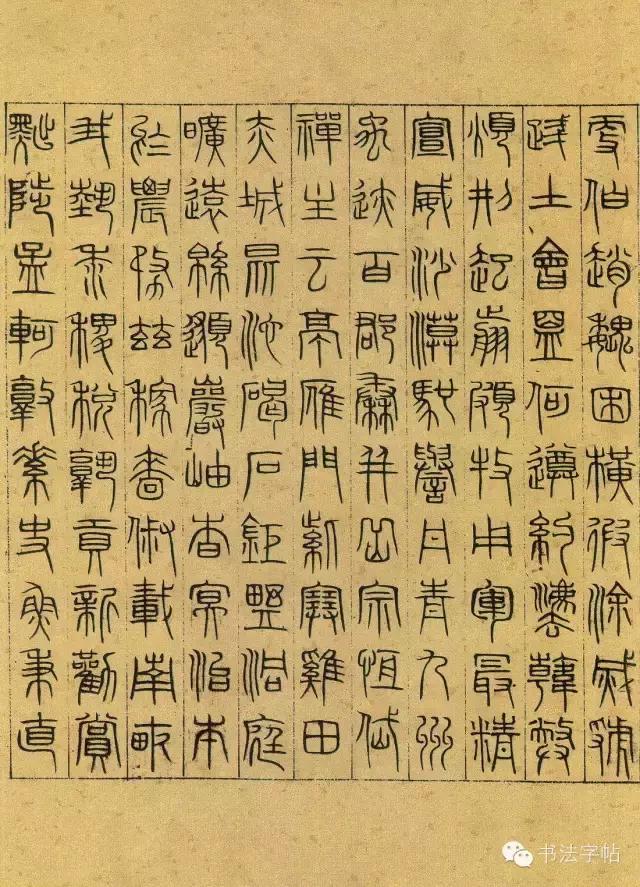 更伯趙魏困橫假涂滅虢
踐土會盟何遵約灋韓弊
煩刑起翦頗牧用軍最精
宣威沙漠馳譽丹青九州
禹迹百郡秦并岳宗恒岱
禪主云亭雁門紫塞雞田
赤城昆池碣石鉅野洞庭
曠遠緜邈巖岫杳冥治本
於農務茲稼穡俶載南畝
我藝黍稷稅孰貢新勸賞
黜陟孟軻敦素史魚秉直
书法字帖